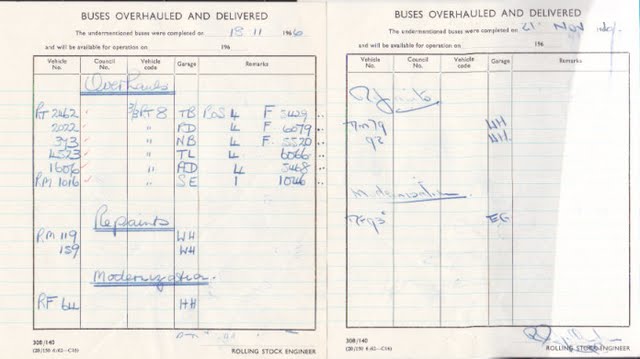 BUSES OVERHAULED AND DELIVERED
The undermentioned buses were completed on 18 11 1966
and will be available for operation on 196
Vehicle No. Council No. Vehicle code Garage Remarks
Overhauls
RT 2462 RT 8 TB BoS 4 F 5429
2022 " RD 4 F 6079
393 " NB 4 F 5520
4523 " TL 4 6066
1606 " AD 4 3468
RM 1016 " SE 1 1046
Repaints
RM 119 WH
159 WH
Modernization.
RF 64 HH
308/140
ROLLING STOCK ENGINEER
BUSES OVERHAULED AND DELIVERED
The undermentioned buses were completed on 21. NOV 196
and will be available for operation on 196
Vehicle No. Council No. Vehicle code Garage Remarks
79 WH
92 WH
EG
308/140
ROLLING STOCK ENGINEER